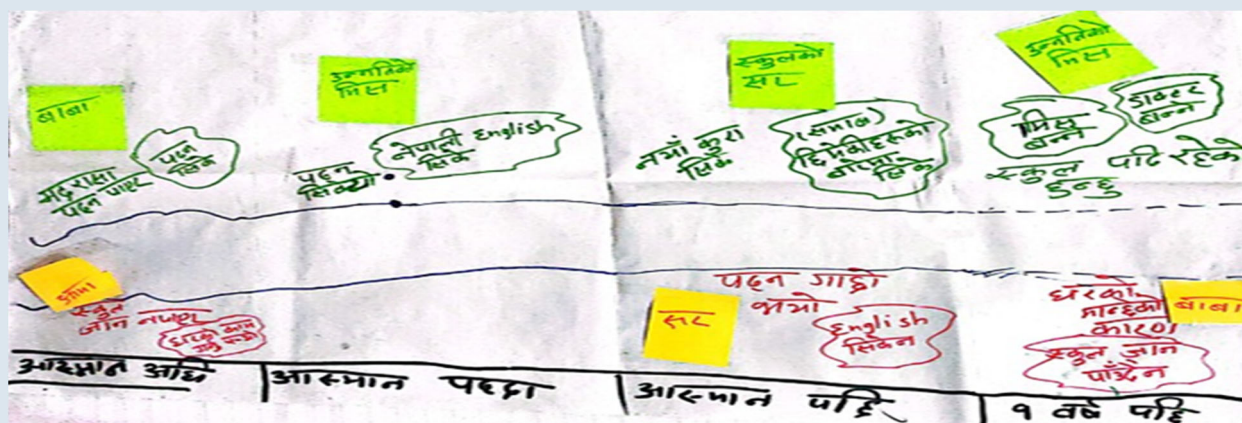 बाबा
मद्रासा
पढ्न पाएर
पढ्न
सिके
उन्नतिको
मिस
पढ्न
सिक्यो
नेपाली English
सिके
स्कुलको
सर
नयाँ कुरा
सिके
(समाज)
छिमेकीहरूको
बारेमा
सिके
उन्नतिको
मिस
मिस
बन्ने
डाक्टर
बन्ने
स्कुल पढि रहेको
हुन्छु
आमा
स्कुल
जान नपाएर
घरको काम
गर्नु पर्‍यो
सर
पढ्न गाह्रो
भयो
English
सिक्न
घरको
मान्छेको
कारण
बाबा
स्कुल जान
पाउँदैन
आस्मान अघि
आस्मान पढ्दा
आस्मान पछि
१ वर्ष पछि